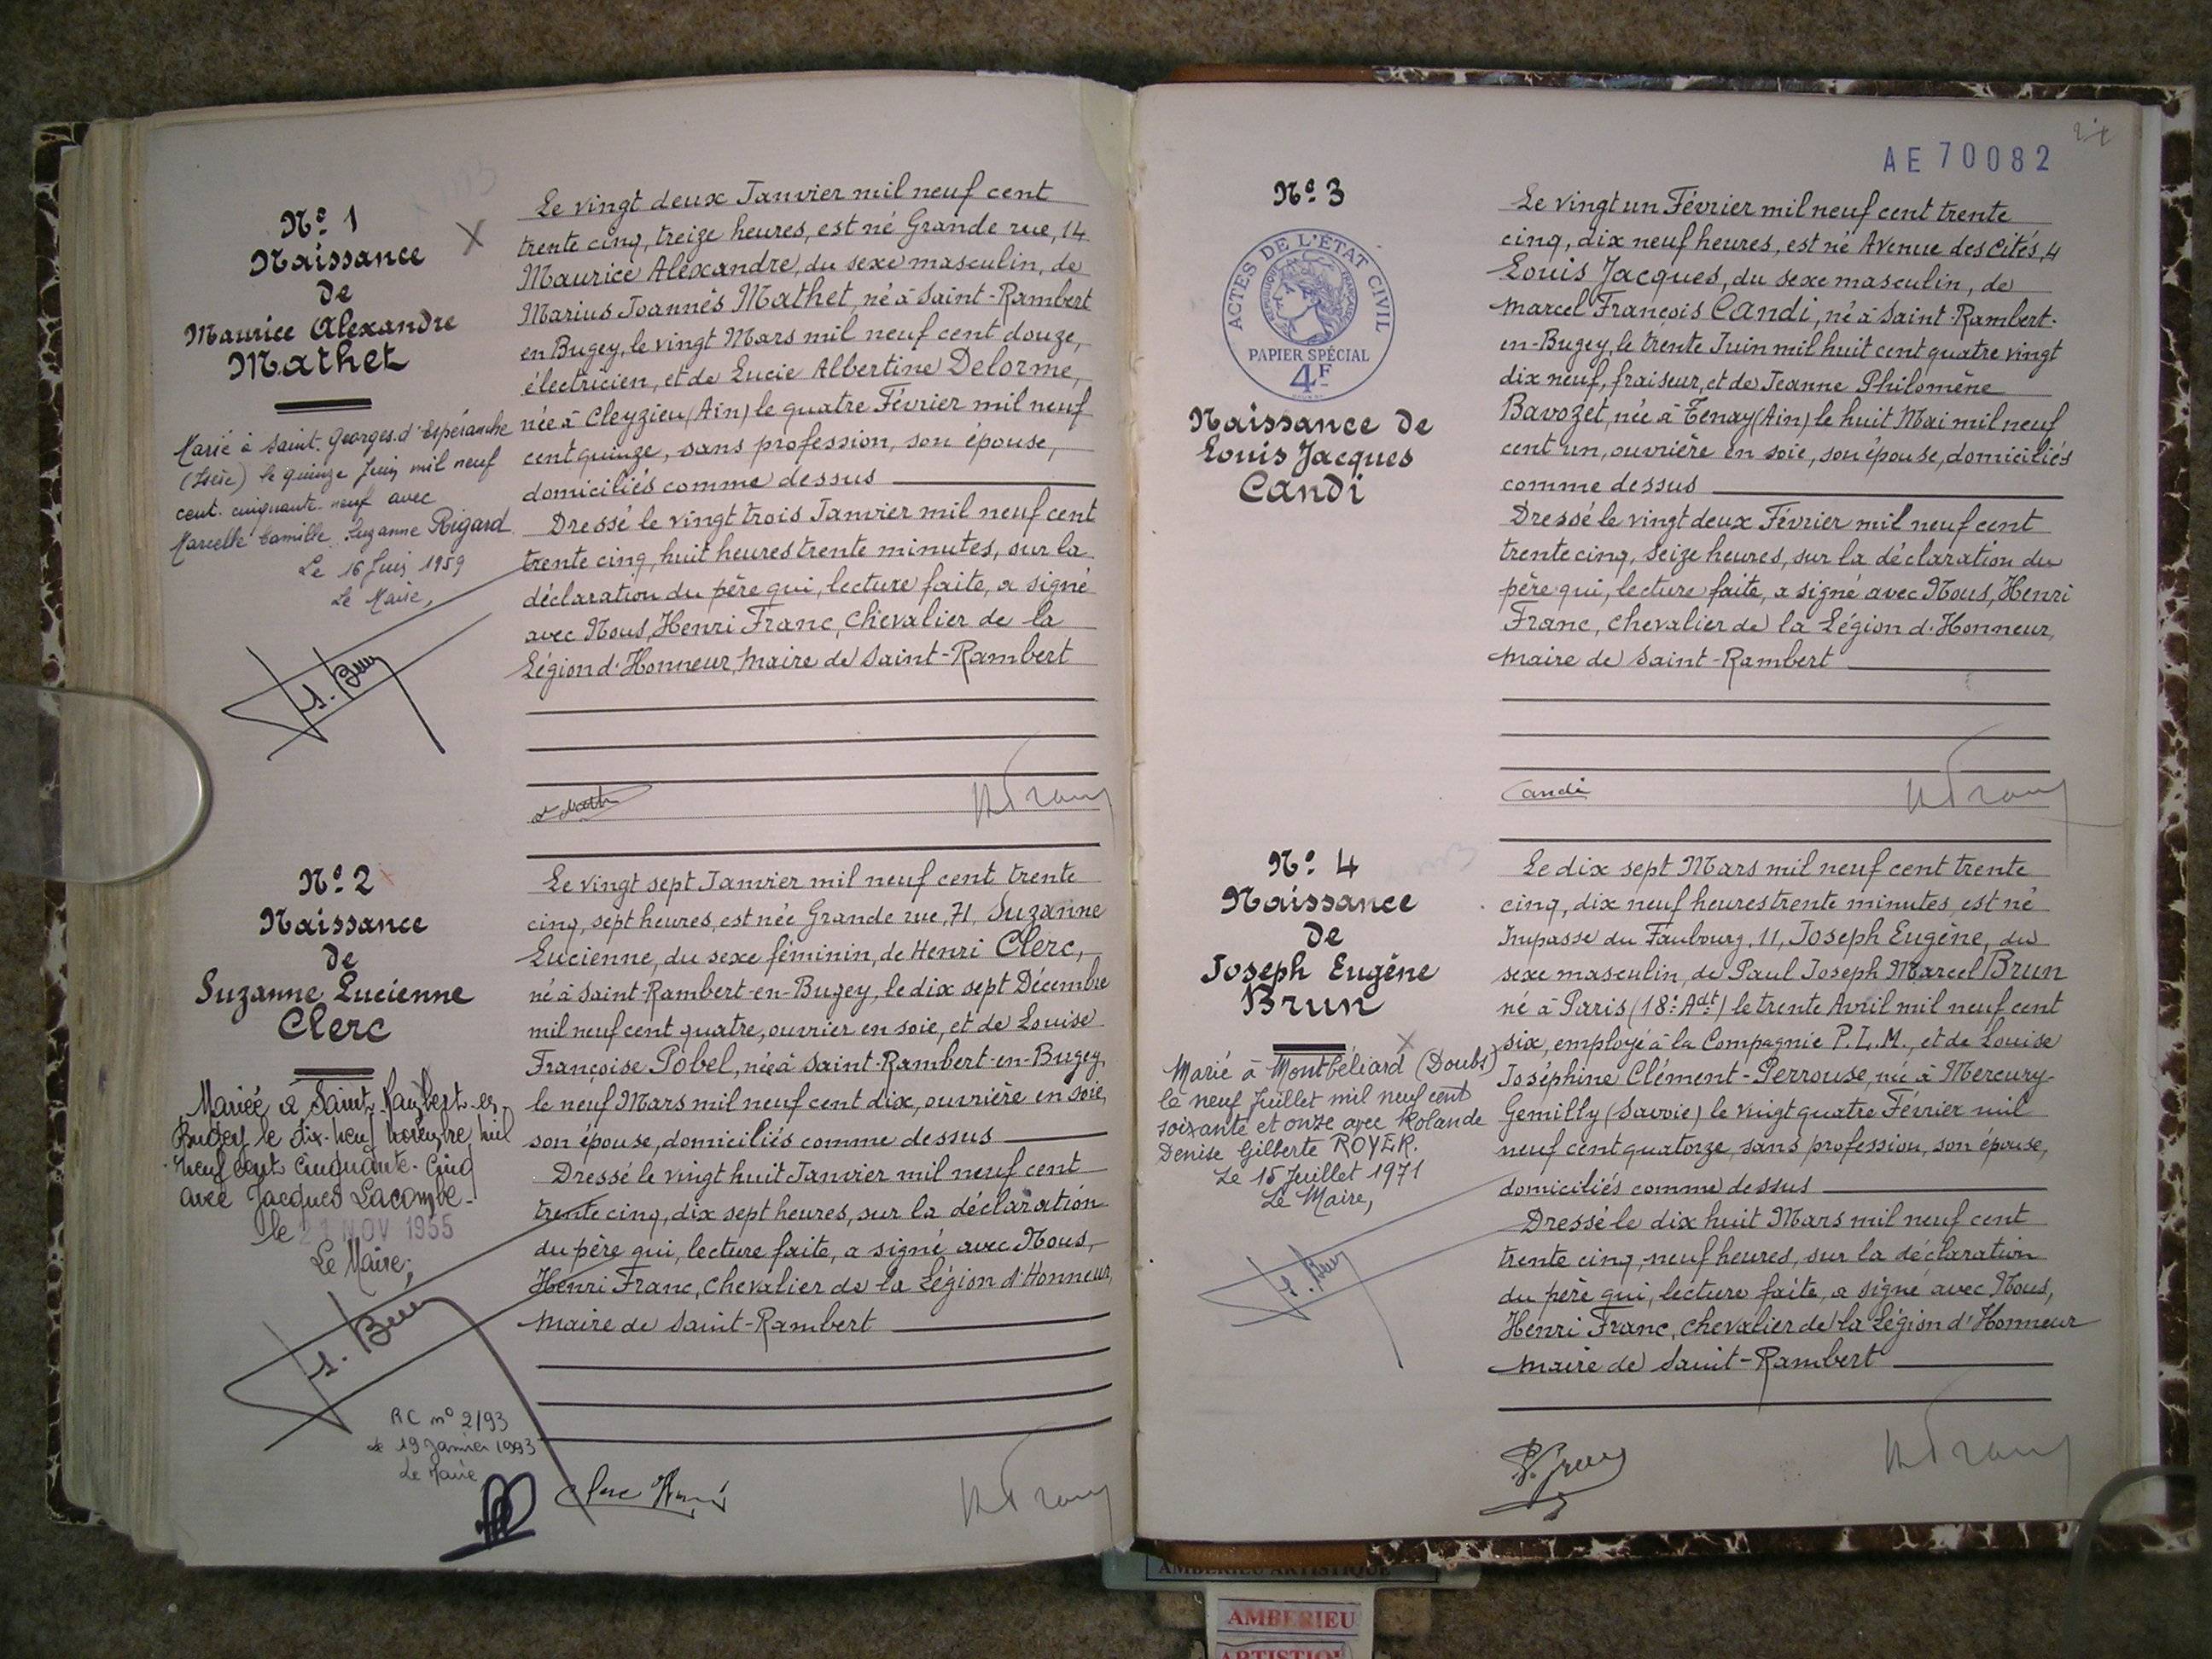 Nº 1
Naissance
de
Maurice Alexandre
Mathet
Marié à Saint-Georges-d'Espéranche
(Isère) le quinze Juin mil neuf
cent cinquante-neuf avec
Marcelle Camille Suzanne Rigard
Le 16 Juin 1959
Le Maire,
Le vingt deux Janvier mil neuf cent
trente cinq, treize heures, est né Grande rue, 14
Maurice Alexandre, du sexe masculin, de
Marius Joannès Mathet, né à Saint-Rambert
en Bugey, le vingt Mars mil neuf cent douze,
électricien, et de Lucie Albertine Delorme,
née à Cleyzieu (Ain) le quatre Février mil neuf
cent quinze, sans profession, son épouse,
domiciliés comme dessus
Dressé le vingt trois Janvier mil neuf cent
trente cinq, huit heures trente minutes, sur la
déclaration du père qui, lecture faite, a signé
avec Nous, Henri Franc, Chevalier de la
Légion d'Honneur, maire de Saint-Rambert
Nº 2
Naissance
de
Suzanne Lucienne
Clerc
Mariée à Saint-Rambert-en-
Bugey le dix-neuf novembre mil
neuf cent cinquante-cinq
avec Jacques Lacombe-
le 21 NOV 1955
Le Maire,
RC nº 2/93
le 19 Janvier 1993
Le Maire
Le vingt sept Janvier mil neuf cent trente
cinq, sept heures, est née Grande rue, 71, Suzanne
Lucienne, du sexe féminin, de Henri Clerc,
né à Saint-Rambert-en-Bugey, le dix sept Décembre
mil neuf cent quatre, ouvrier en soie, et de Louise
Françoise Pobel, née à Saint-Rambert-en-Bugey,
le neuf Mars mil neuf cent dix, ouvrière en soie,
son épouse, domiciliés comme dessus
Dressé le vingt huit Janvier mil neuf cent
trente cinq, dix sept heures, sur la déclaration
du père qui, lecture faite, a signé avec Nous,
Henri Franc, Chevalier de la Légion d'Honneur,
maire de Saint-Rambert
Clerc Henri
AE 70082
Nº 3
ACTES DE L'ÉTAT CIVIL
RÉPUBLIQUE FRANÇAISE
PAPIER SPÉCIAL
4F
Naissance de
Louis Jacques
Candi
Le vingt un Février mil neuf cent trente
cinq, dix neuf heures, est né Avenue des Cités, 4
Louis Jacques, du sexe masculin, de
Marcel François Candi, né à Saint-Rambert-
en-Bugey, le trente Juin mil huit cent quatre vingt
dix neuf, fraiseur, et de Jeanne Philomène
Bavozet, née à Tenay (Ain) le huit Mai mil neuf
cent un, ouvrière en soie, son épouse, domiciliés
comme dessus
Dressé le vingt deux Février mil neuf cent
trente cinq, seize heures, sur la déclaration du
père qui, lecture faite, a signé avec Nous, Henri
Franc, Chevalier de la Légion d'Honneur,
maire de Saint-Rambert
Candi
Nº 4
Naissance
de
Joseph Eugène
Brun
Marié à Montbéliard (Doubs)
le neuf Juillet mil neuf cent
soixante et onze avec Rolande
Denise Gilberte ROYER.
Le 15 Juillet 1971
Le Maire,
Le dix sept Mars mil neuf cent trente
cinq, dix neuf heures trente minutes, est né
Impasse du Faubourg, 11, Joseph Eugène, du
sexe masculin, de Paul Joseph Marcel Brun
né à Paris (18e Adt) le trente Avril mil neuf cent
six, employé à la Compagnie P.L.M., et de Louise
Joséphine Clément-Perrouse, née à Mercury-
Gemilly (Savoie) le vingt quatre Février mil
neuf cent quatorze, sans profession, son épouse,
domiciliés comme dessus
Dressé le dix huit Mars mil neuf cent
trente cinq, neuf heures, sur la déclaration
du père qui, lecture faite, a signé avec Nous,
Henri Franc, Chevalier de la Légion d'Honneur
maire de Saint-Rambert
AMBERIEU ARTISTIQUE
AMBERIEU
ARTISTIQUE